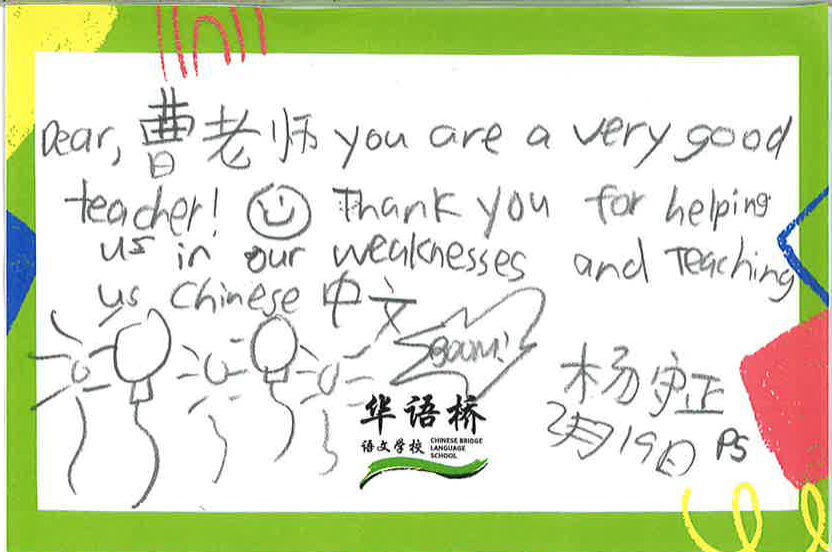 Dear, 曹老师 you are a very good
teacher! Thank you for helping
us in our weaknesses and Teaching
us Chinese 中文
BOOM!
杨守正
2月19日 P5
华语桥
语文学校 CHINESE BRIDGE
LANGUAGE
SCHOOL